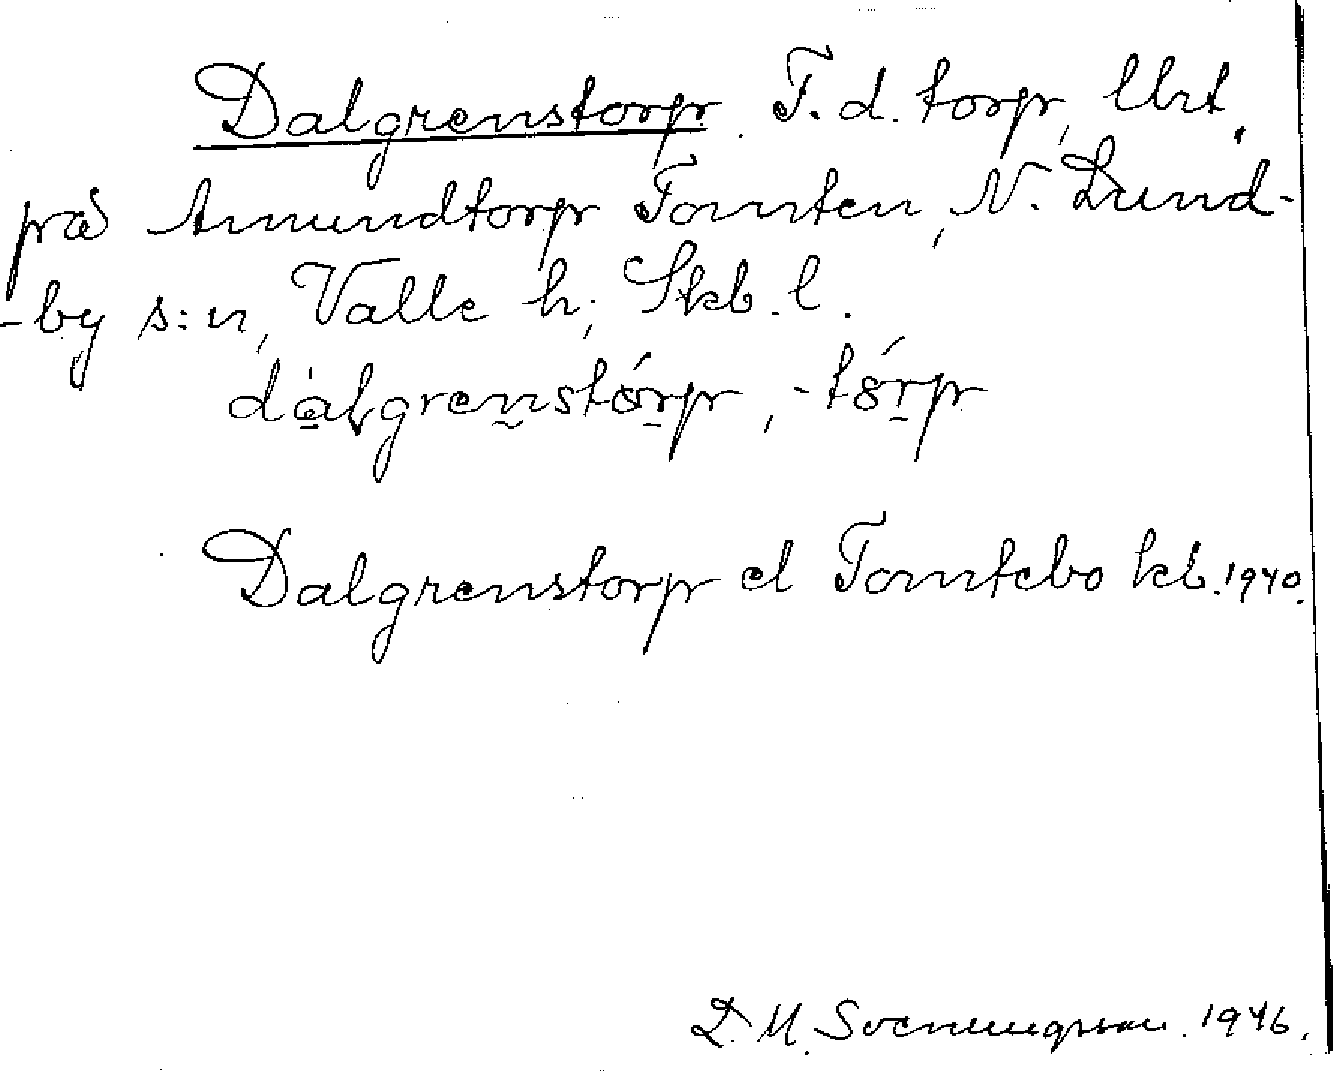 Dalgrenstorp. F.d. torp, lht,
på Amundtorp Tomten, N. Lund-
-by s:n, Valle h; Skb. l.
dàlgrenstórp, -tórp
Dalgrenstorp el Tomtebo kb. 1940.
D. M. Svenungsson. 1946.